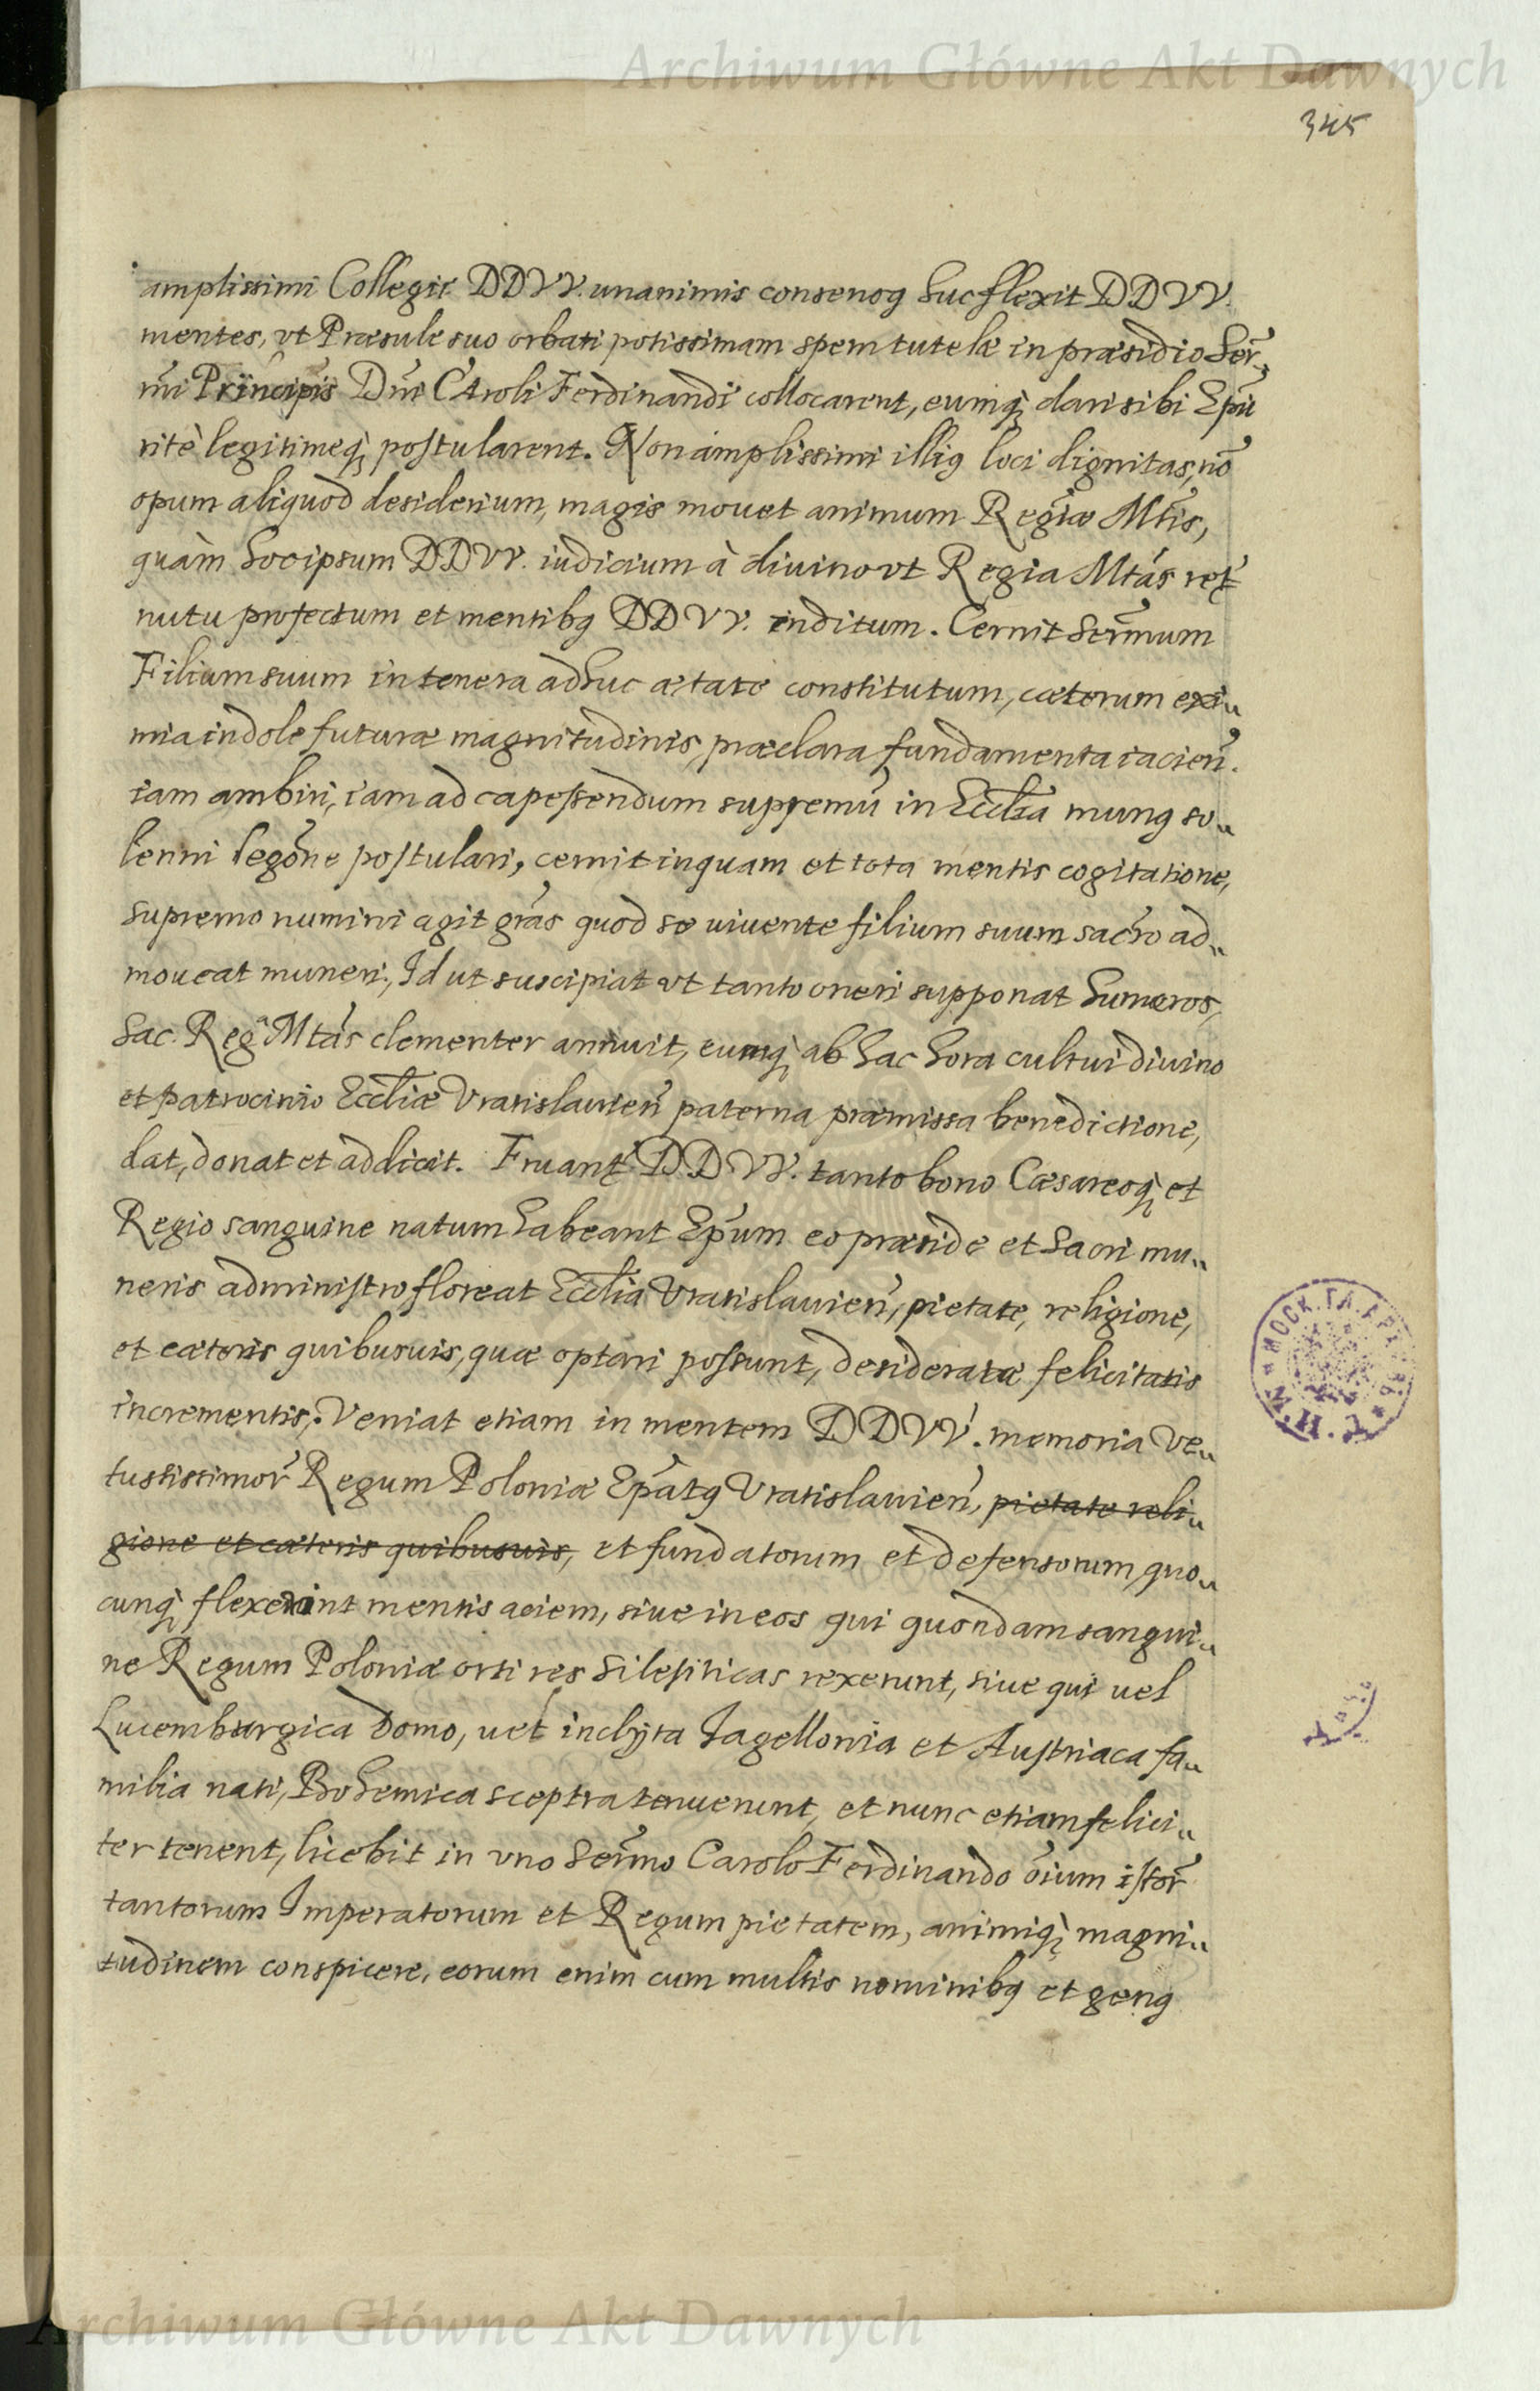 Archiwum Główne Akt Dawnych
345
amplissimi Collegii DDVV. unanimis consensq huc flexit DDVV.
mentes, vt Præsule suo orbati potissimam spem tutelæ in præsidio Ser-
mi Principis Dni Caroli Ferdinandi collocarent, eumq dari sibi Epū
ritè legitimeq postularent. Non amplissimi illiq loci dignitas, nō
opum aliquod desiderium, magis mouet animum Regiæ Mtis,
quàm hoc ipsum DDVV. iudicium à diuino vt Regia Mtas ret
nutu profectum et mentibq DDVV. inditum. Cernit Sermum
Filium suum in tenera adhuc ætate constitutum, cæterum exi„
mia indole futuræ magnitudinis præclara fundamenta iacien̄.
iam ambiri, iam ad capessendum supremū in Ecclia munq so„
lenni legōne postulari, cernit inquam et tota mentis cogitatione,
supremo numini agit grās quod se uiuente filium suum sacro ad„
moueat muneri, Id ut suscipiat vt tanto oneri supponat humeros,
Sac. Reg Mtas clementer annuit, eumq ab hac hora cultui diuino
et patrocinio Eccliæ Vratislauien̄ paterna præmissa benedictione,
dat, donat et addicit. Fruant DDVV. tanto bono Cæsareoq et
Regio sanguine natum habeant Epum eo præside et sacri mu„
neris administro floreat Ecclia Vratislauien̄, pietate, religione,
et cæteris quibusuis, quæ optari possunt, desideratæ felicitatis
incrementis, Veniat etiam in mentem DDVV. memoria ve„
tustissimor̄ Regum Poloniæ Epātq Vratislauien̄, pietate reli„
gione et cæteris quibusuis, et fundatorum et defensorum, quo„
cunq flexerint mentis aciem, siue in eos qui quondam sangui„
ne Regum Poloniæ orti res Silesiticas rexerunt, siue qui uel
Lucemburgica domo, uel inclyta Jagellonia et Austriaca fa„
milia nati, Bohemica sceptra tenuerunt, et nunc etiam felici„
ter tenent, licebit in vno Sermo Carolo Ferdinando ōium istor̄
tantorum Imperatorum et Regum pietatem, animiq magni„
tudinem conspicere, eorum enim cum multis nominibq et genq
Archiwum Główne Akt Dawnych